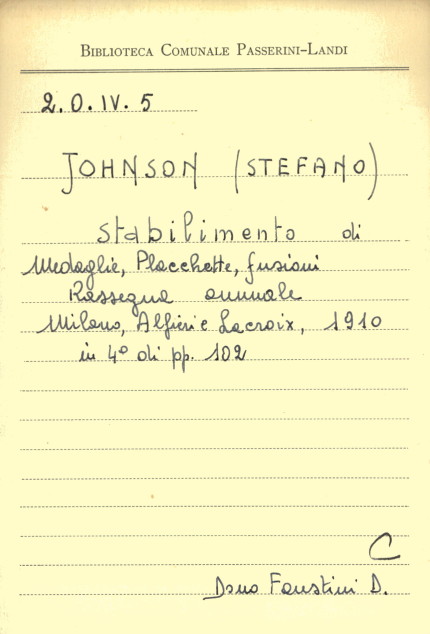 BIBLIOTECA COMUNALE PASSERINI-LANDI
2.O.IV.5
JOHNSON (STEFANO)
Stabilimento di
Medaglie, Placchette, fusioni
Rassegna annuale
Milano, Alfieri e Lacroix, 1910
in 4° di pp. 102
C
Dono Faustini D.